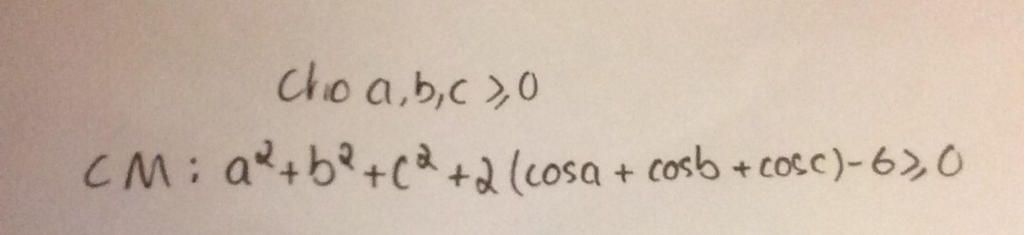 Cho a,b,c ⩾ 0
CM: a²+b²+c²+2(cosa + cosb + cosc)-6⩾0